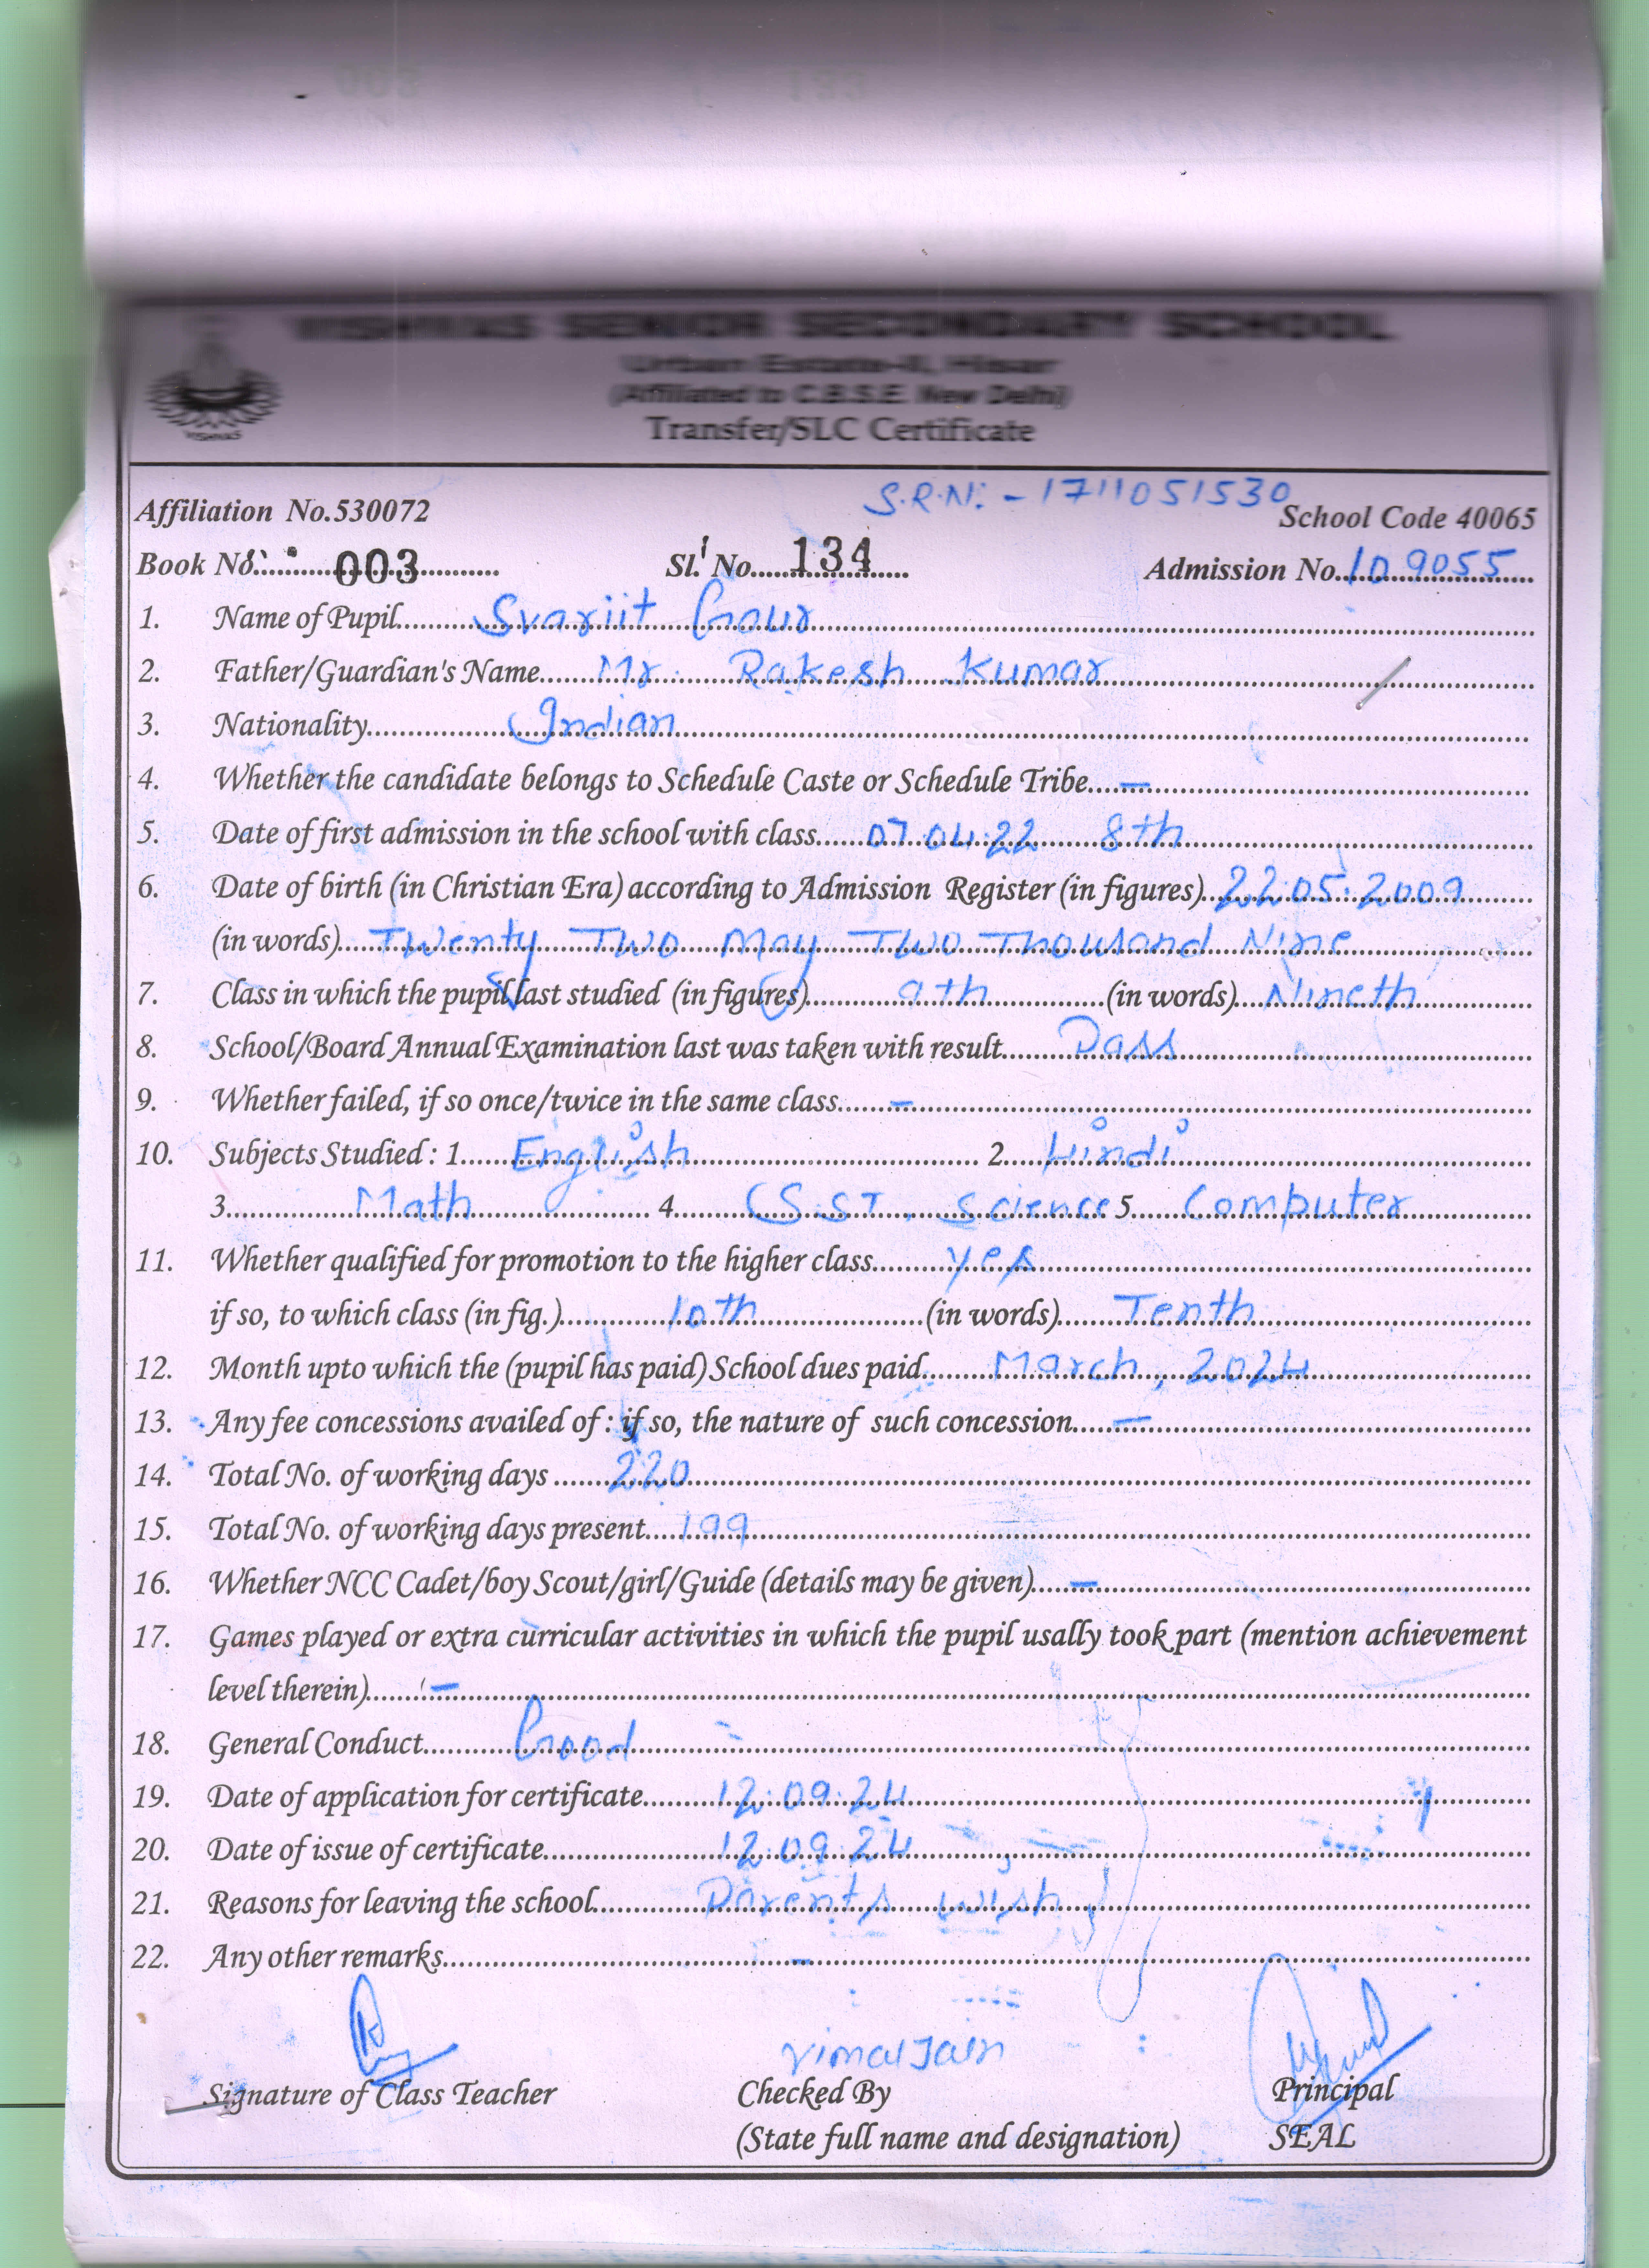 VISHWAS SENIOR SECONDARY SCHOOL
Urban Estate-II, Hisar
(Affiliated to C.B.S.E. New Delhi)
Transfer/SLC Certificate
VISHWAS
S.R.N: - 1711051530
Affiliation No.530072 School Code 40065
Book No. 003 Sl. No. 134 Admission No. 109055
1. Name of Pupil Svarjit Gaur
2. Father/Guardian's Name Mr. Rakesh Kumar
3. Nationality Indian
4. Whether the candidate belongs to Schedule Caste or Schedule Tribe -
5. Date of first admission in the school with class 07.04.22 8th
6. Date of birth (in Christian Era) according to Admission Register (in figures) 22.05.2009
(in words) Twenty Two May Two Thousand Nine
7. Class in which the pupil last studied (in figures) 9th (in words) Nineth
8. School/Board Annual Examination last was taken with result Pass
9. Whether failed, if so once/twice in the same class -
10. Subjects Studied : 1. English 2. Hindi
3. Math 4. S.ST, Science 5. Computer
11. Whether qualified for promotion to the higher class yes
if so, to which class (in fig.) 10th (in words) Tenth
12. Month upto which the (pupil has paid) School dues paid March, 2024
13. Any fee concessions availed of : if so, the nature of such concession -
14. Total No. of working days 220
15. Total No. of working days present 199
16. Whether NCC Cadet/boy Scout/girl/Guide (details may be given) -
17. Games played or extra curricular activities in which the pupil usally took part (mention achievement
level therein) -
18. General Conduct Good
19. Date of application for certificate 12.09.24
20. Date of issue of certificate 12.09.24
21. Reasons for leaving the school Parents wish
22. Any other remarks -
Vimal Jain
Signature of Class Teacher Checked By Principal
(State full name and designation) SEAL